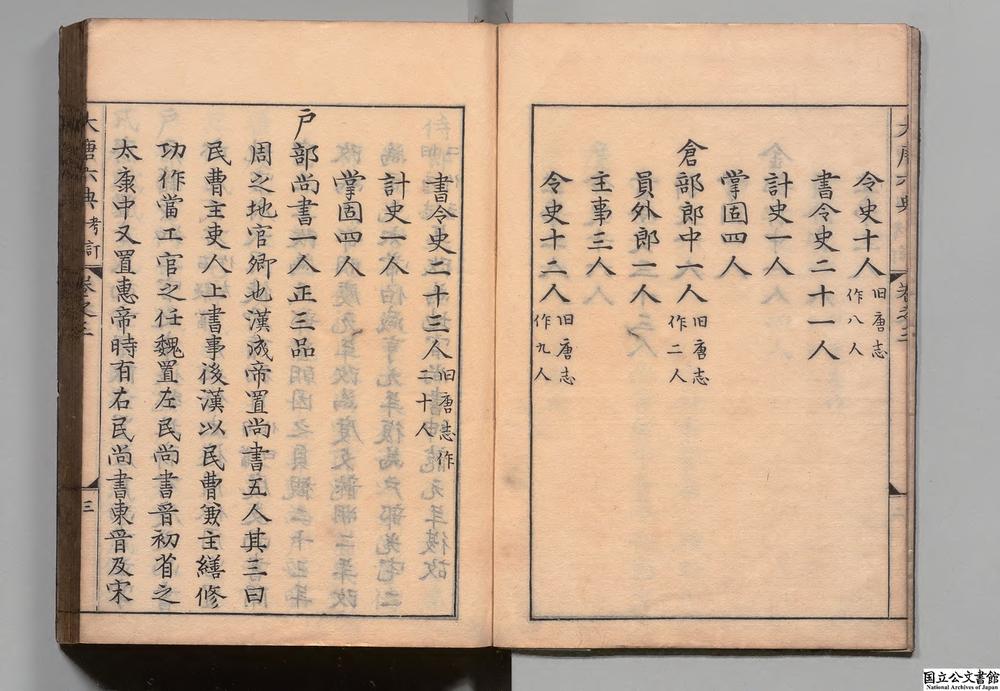 令史十人旧唐志作八人
書令史二十一人
計史一人
掌固四人
倉部郎中一人旧唐志作二人
員外郎一人
主事三人
令史十二人旧唐志作九人
書令史二十三人旧唐志作二十人
計史一人
掌固四人
户部尚書一人正三品
周之地官卿也漢成帝置尚書五人其三曰
民曹主吏人上書事後漢以民曹兼主繕修
功作當工官之任魏置左民尚書晋初省之
太康中又置惠帝時有右民尚書東晋及宋
大唐六典考訂 卷之三 三
国立公文書館
National Archives of Japan